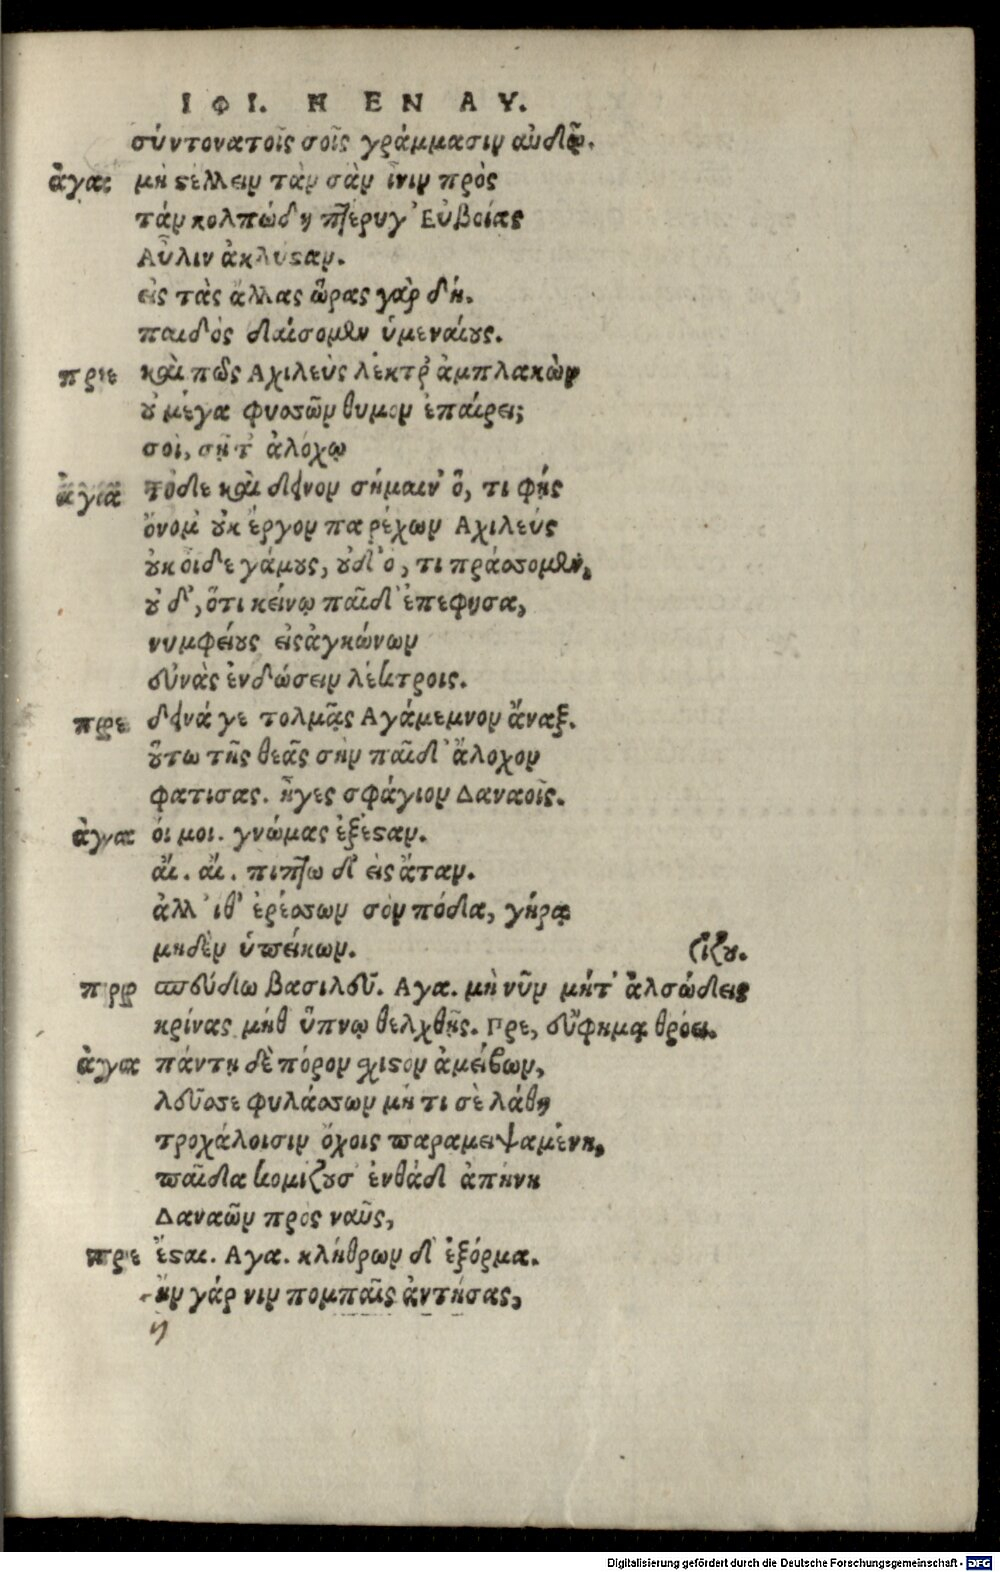 ΙΦΙ. Η ΕΝ ΑΥ.
σύντονατοῖς σοῖς γράμμασιν αὐδῶ.
ἀγα: μὴ στέλλειν τὰν σὰν ἶνιν πρὸς
τάν κολπώδη πτέρυγ' Εὐβοίας
Αὖλιν ἀκλύσταν.
εἰς τὰς ἄλλας ὥρας γὰρ δή.
παιδὸς δαίσομεν ὑμεναίους.
πρε καὶ πῶς Αχιλεὺς λέκτρ' ἀμπλακὼν
οὐ μέγα φυσσῶν θυμον ἐπαίρει;
σοὶ, σῇ τ' ἀλόχῳ
ἀγα τόδε καὶ δεινον σήμαιν' ὅ, τι φῄς
ὄνομ' οὐκ ἔργον παρέχων Αχιλεύς
οὐκ οἶδε γάμους, οὐδ' ὅ, τι πράσσομεν,
οὐ δ', ὅτι κείνῳ παῖδ' ἐπεφησα,
νυμφείους εἰς ἀγκώνων
εὐνὰς ἐνδώσειν λέκτροις.
πρε δεινά γε τολμᾷς Αγάμεμνον ἄναξ.
οὕτω τῆς θεᾶς σὴν παῖδ' ἄλοχον
φατισας. ἦγες σφάγιον Δαναοῖς.
ἀγα οἱ μοι. γνώμας ἐξέσταν.
αἲ. αἲ. πιπτω δ' εἰς ἄταν.
ἀλλ' ιθ' ἐρέσσων σὸν πόδα, γήρᾳ
μηδὲν ὑπείκων. ζου.
πρε σπεύδω βασιλεῦ. Αγα. μὴ νῦν μήτ' ἀλσώδεις
κρίνας μήθ' ὕπνῳ θελχθῇς. Πρε, εὔφημα θρόει.
ἀγα πάντη δὲ πόρον σχιστον ἀμείβων,
λεῦσσε φυλάσσων μή τι σὲ λάθῃ
τροχάλοισιν ὄχοις παραμειψαμένη,
παῖδα κομίζουσ' ἐνθάδ' ἀπήνη
Δαναῶν πρὸς ναῦς,
πρε ἔσται. Αγα. κλήθρων δ' ἐξόρμα.
ἢν γάρ νιν πομπαῖς ἀντήσας,